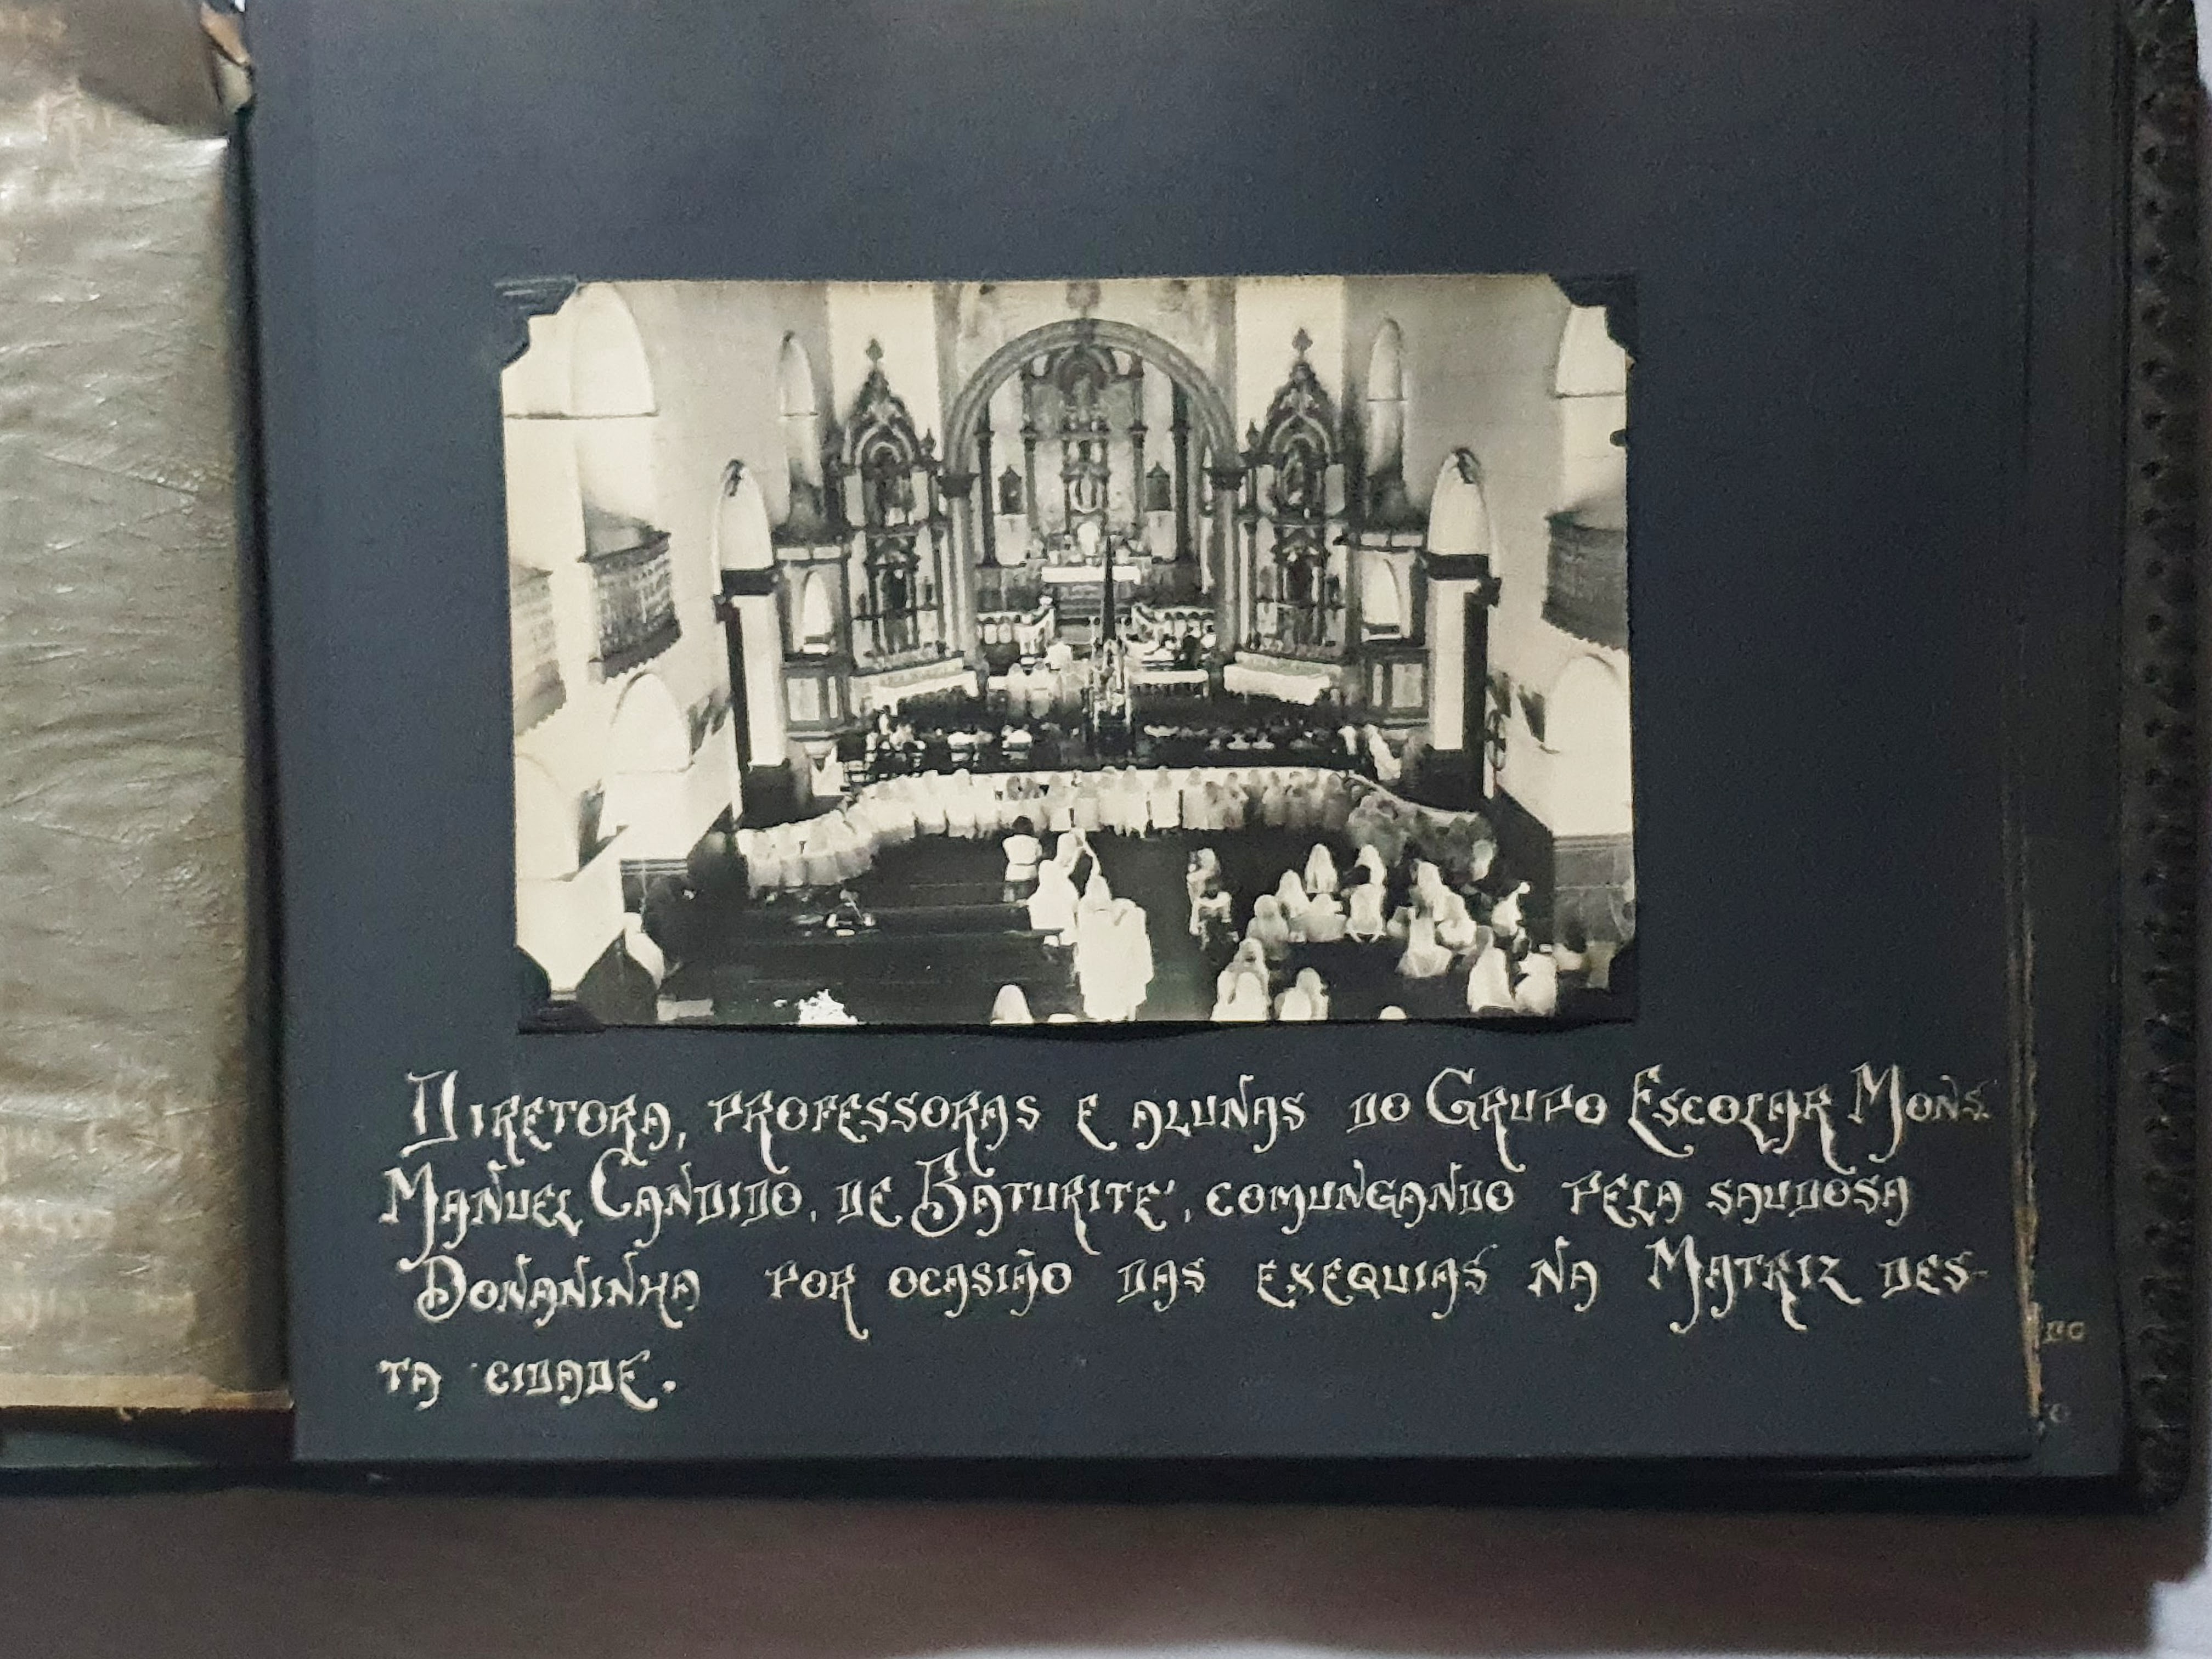 Diretora, professoras e alunas do Grupo Escolar Mons.
Manuel Candido, de Baturité, comungando pela saudosa
Donaninha por ocasião das exequias na Matriz des-
ta cidade.
do